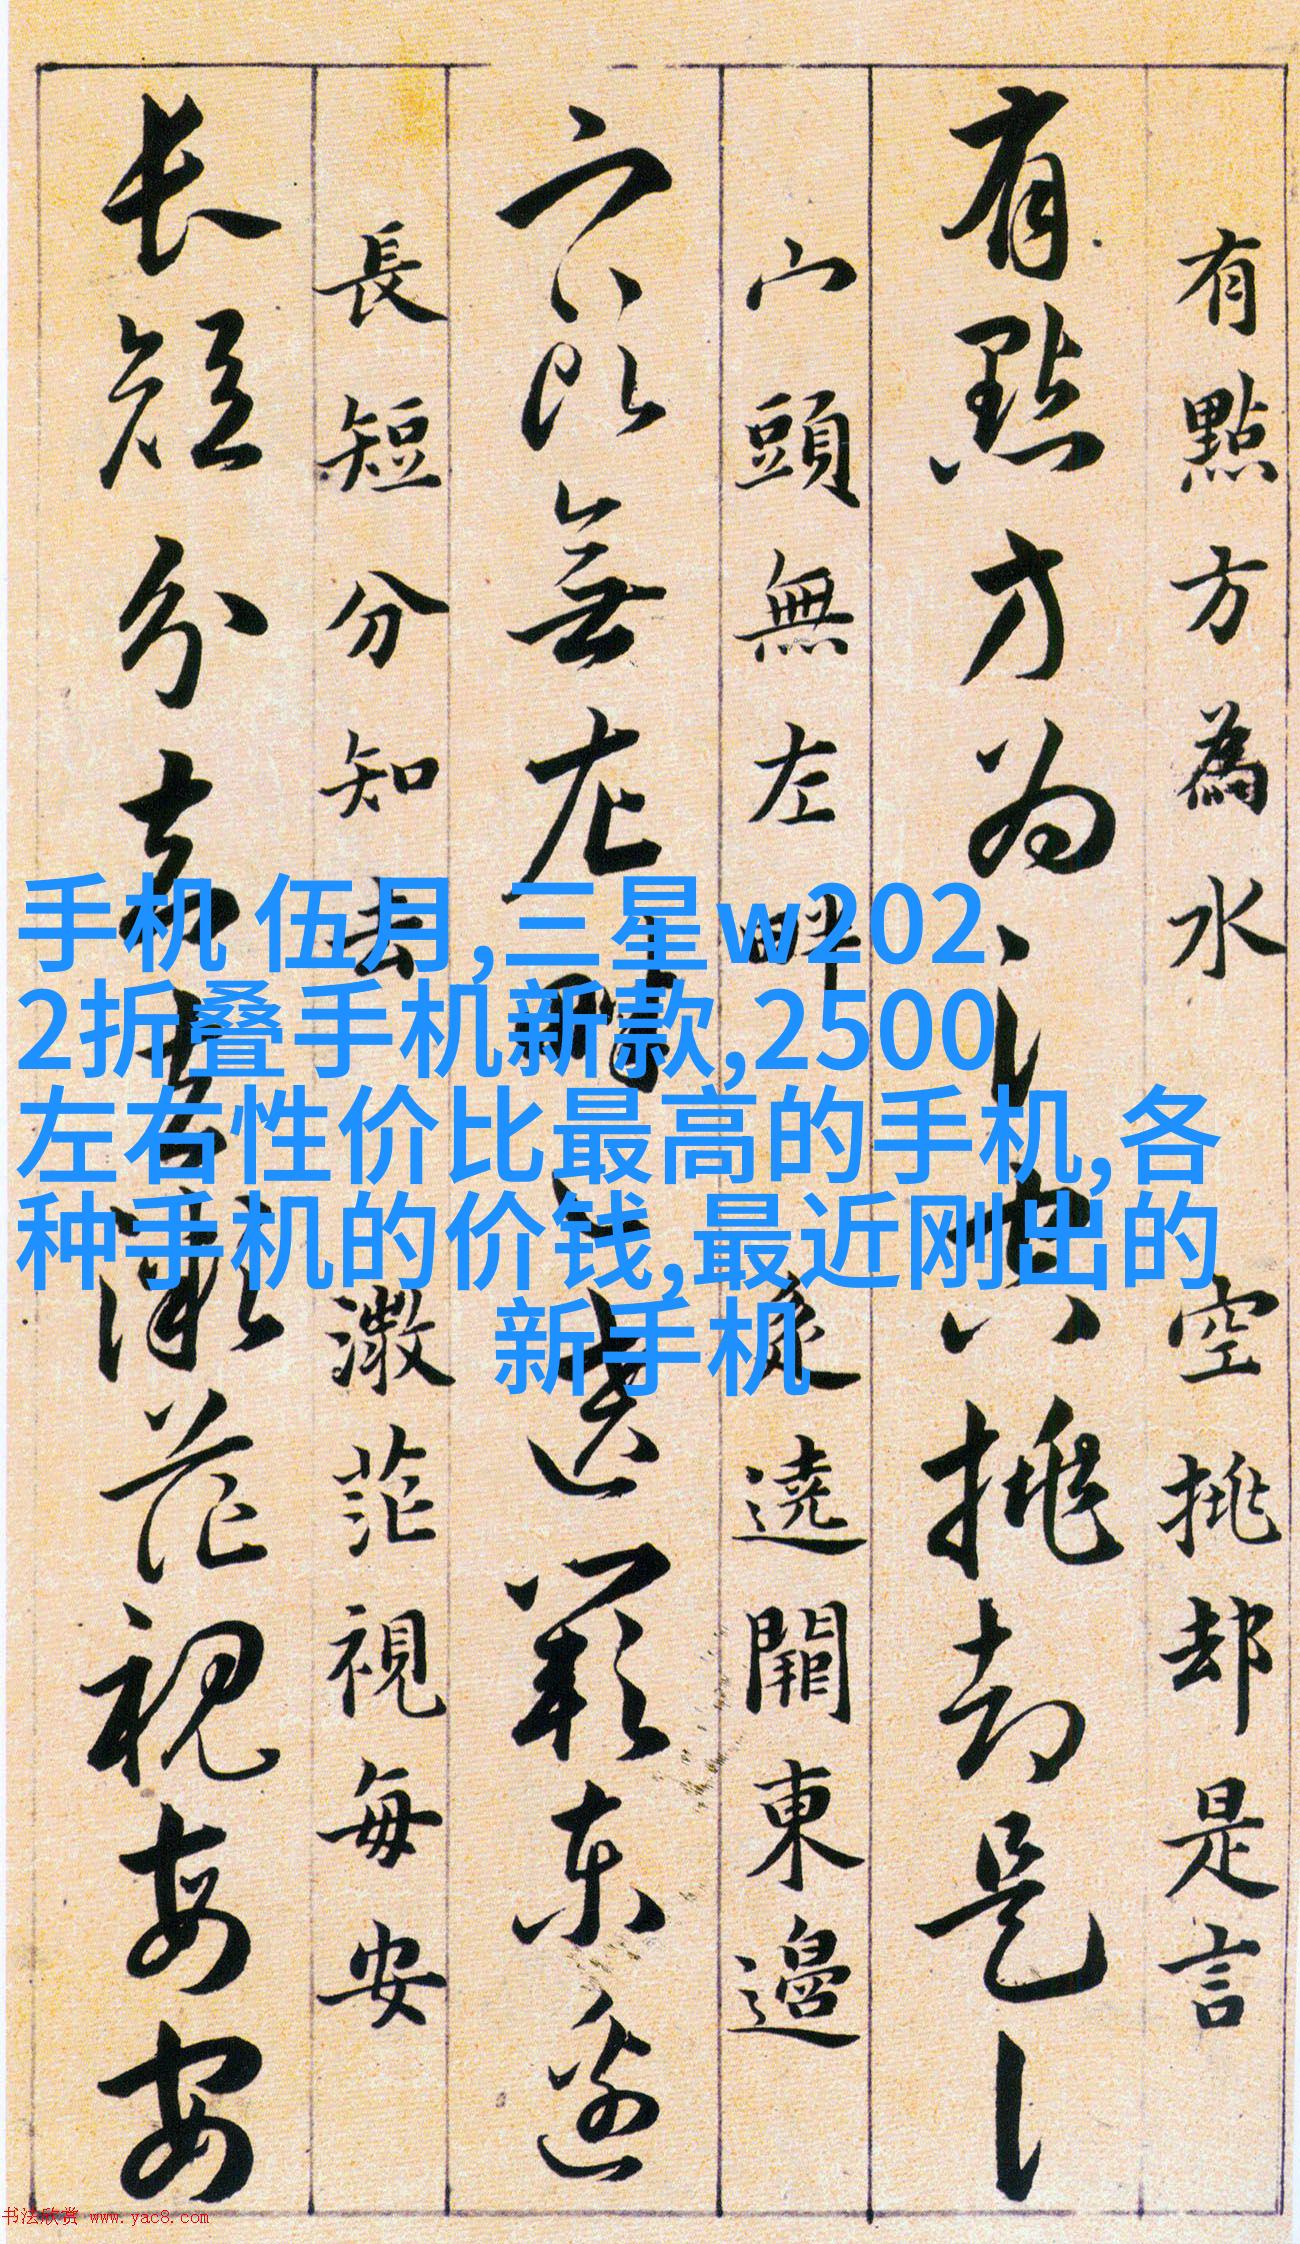 有點方為水 空挑却是言
有點方为氵空挑却是讠
宀頭無左畔 遶闕東邊
宀頭無左畔辶遶闕東邊
長短分知去 溦茫視每安
长短分知去溦茫視每安
手机 伍月,三星w202
2折叠手机新款,2500
左右性价比最高的手机,各
种手机的价钱,最近刚出的
新手机
书法欣赏 www.yac8.com